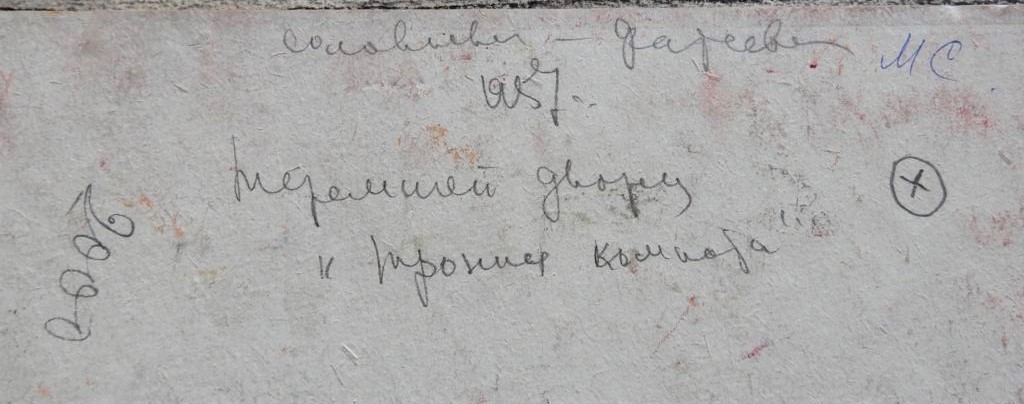 Соловьева – Фатеева
МС
1957..
Теремной дворец
"тронная комната"